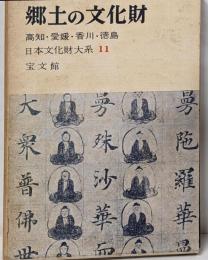 郷土の文化財
高知・愛媛・香川・徳島
日本文化財大系 11
宝文館
大衆普佛世
曼殊沙華
曼陀羅華